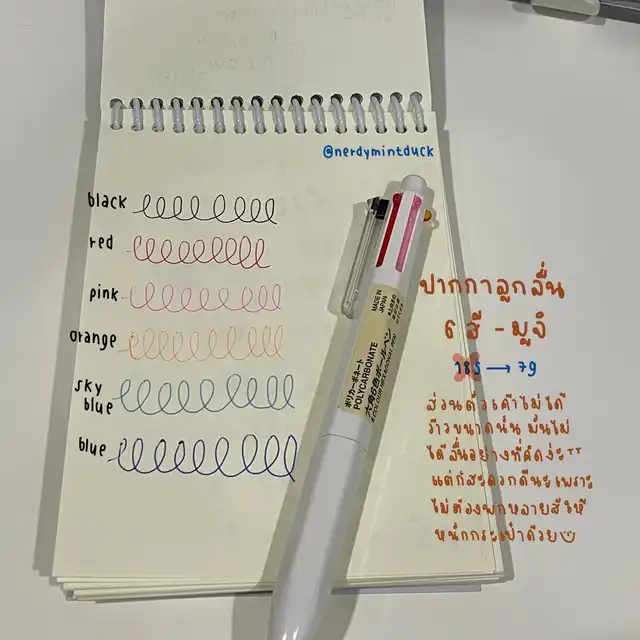 @nerdymintduck
black
red
pink
orange
sky
blue
blue
MADE IN
JAPAN
ポリカーボネート
POLYCARBONATE
六角6色ボールペン
6 COLOUR HEXAGONAL PEN
ปากกาลูกลื่น
6 สี - มูจิ
185 → 79
ส่วนตัวเค้าไม่ได้
ว้าวขนาดนั้น มันไม่
ได้ลื่นอย่างที่คิดง่ะTT
แต่ก็สะดวกดีนะเพราะ
ไม่ต้องพกหลายสีให้
หนักกระเป๋าด้วย